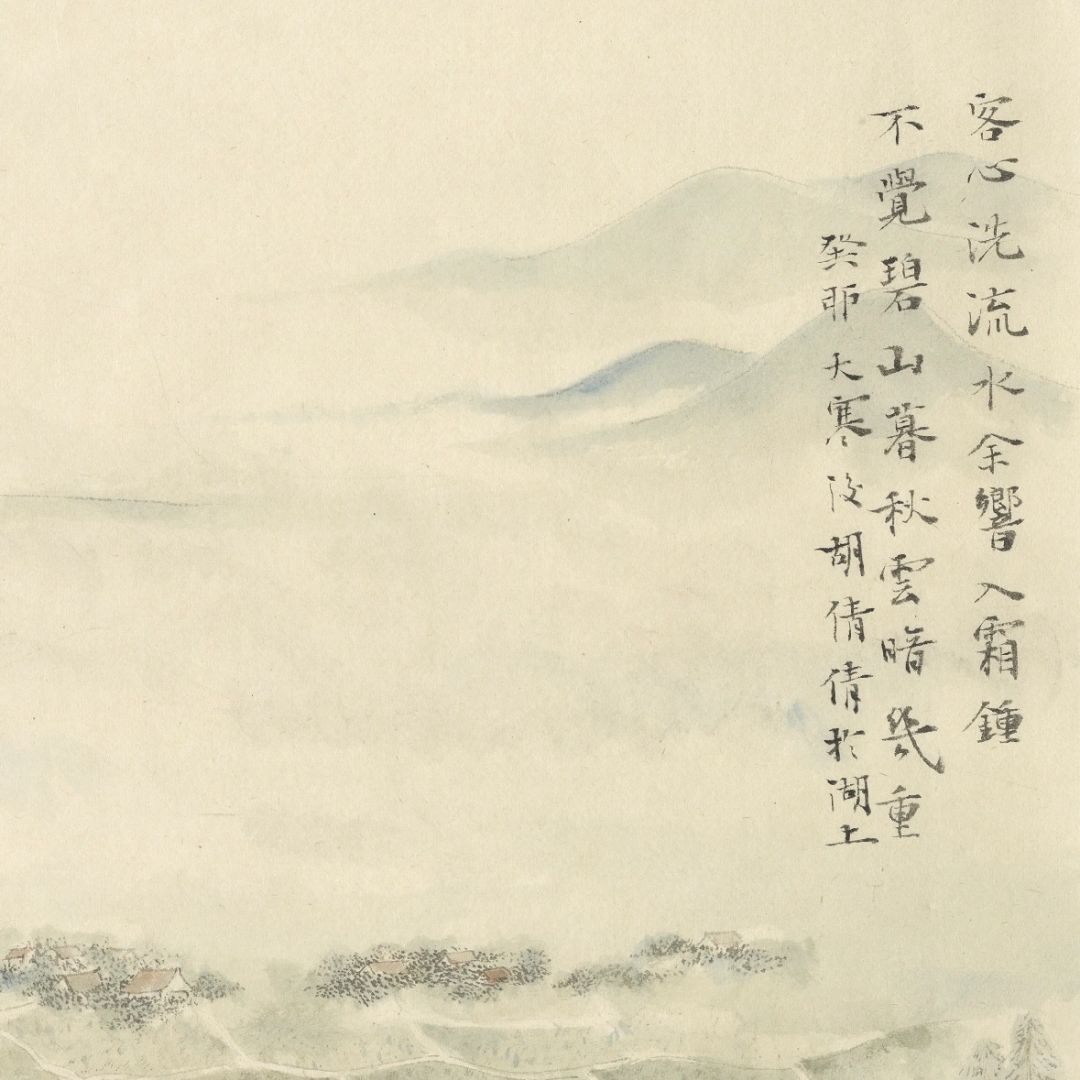 客心洗流水余響入霜鍾
不覺碧山暮秋雲暗幾重
癸卯大寒後胡倩倩於湖上